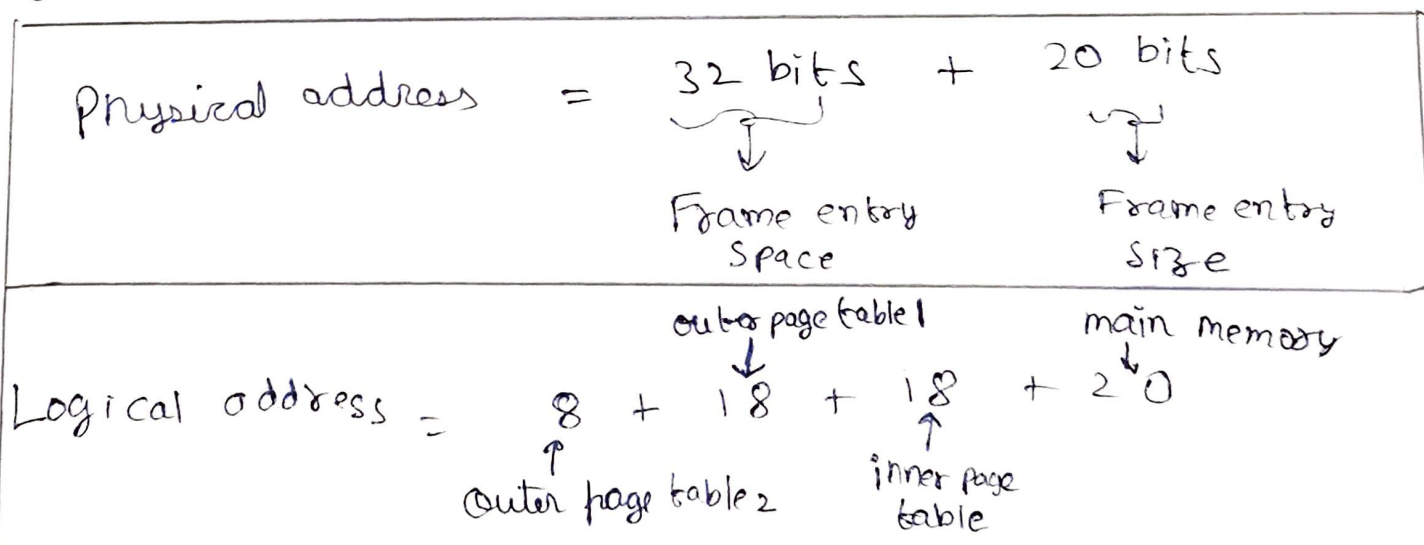 Physical address = 32 bits + 20 bits
Frame entry Frame entry
Space Size
outer page table 1 main memory
Logical address = 8 + 18 + 18 + 20
outer page table 2 inner page
table